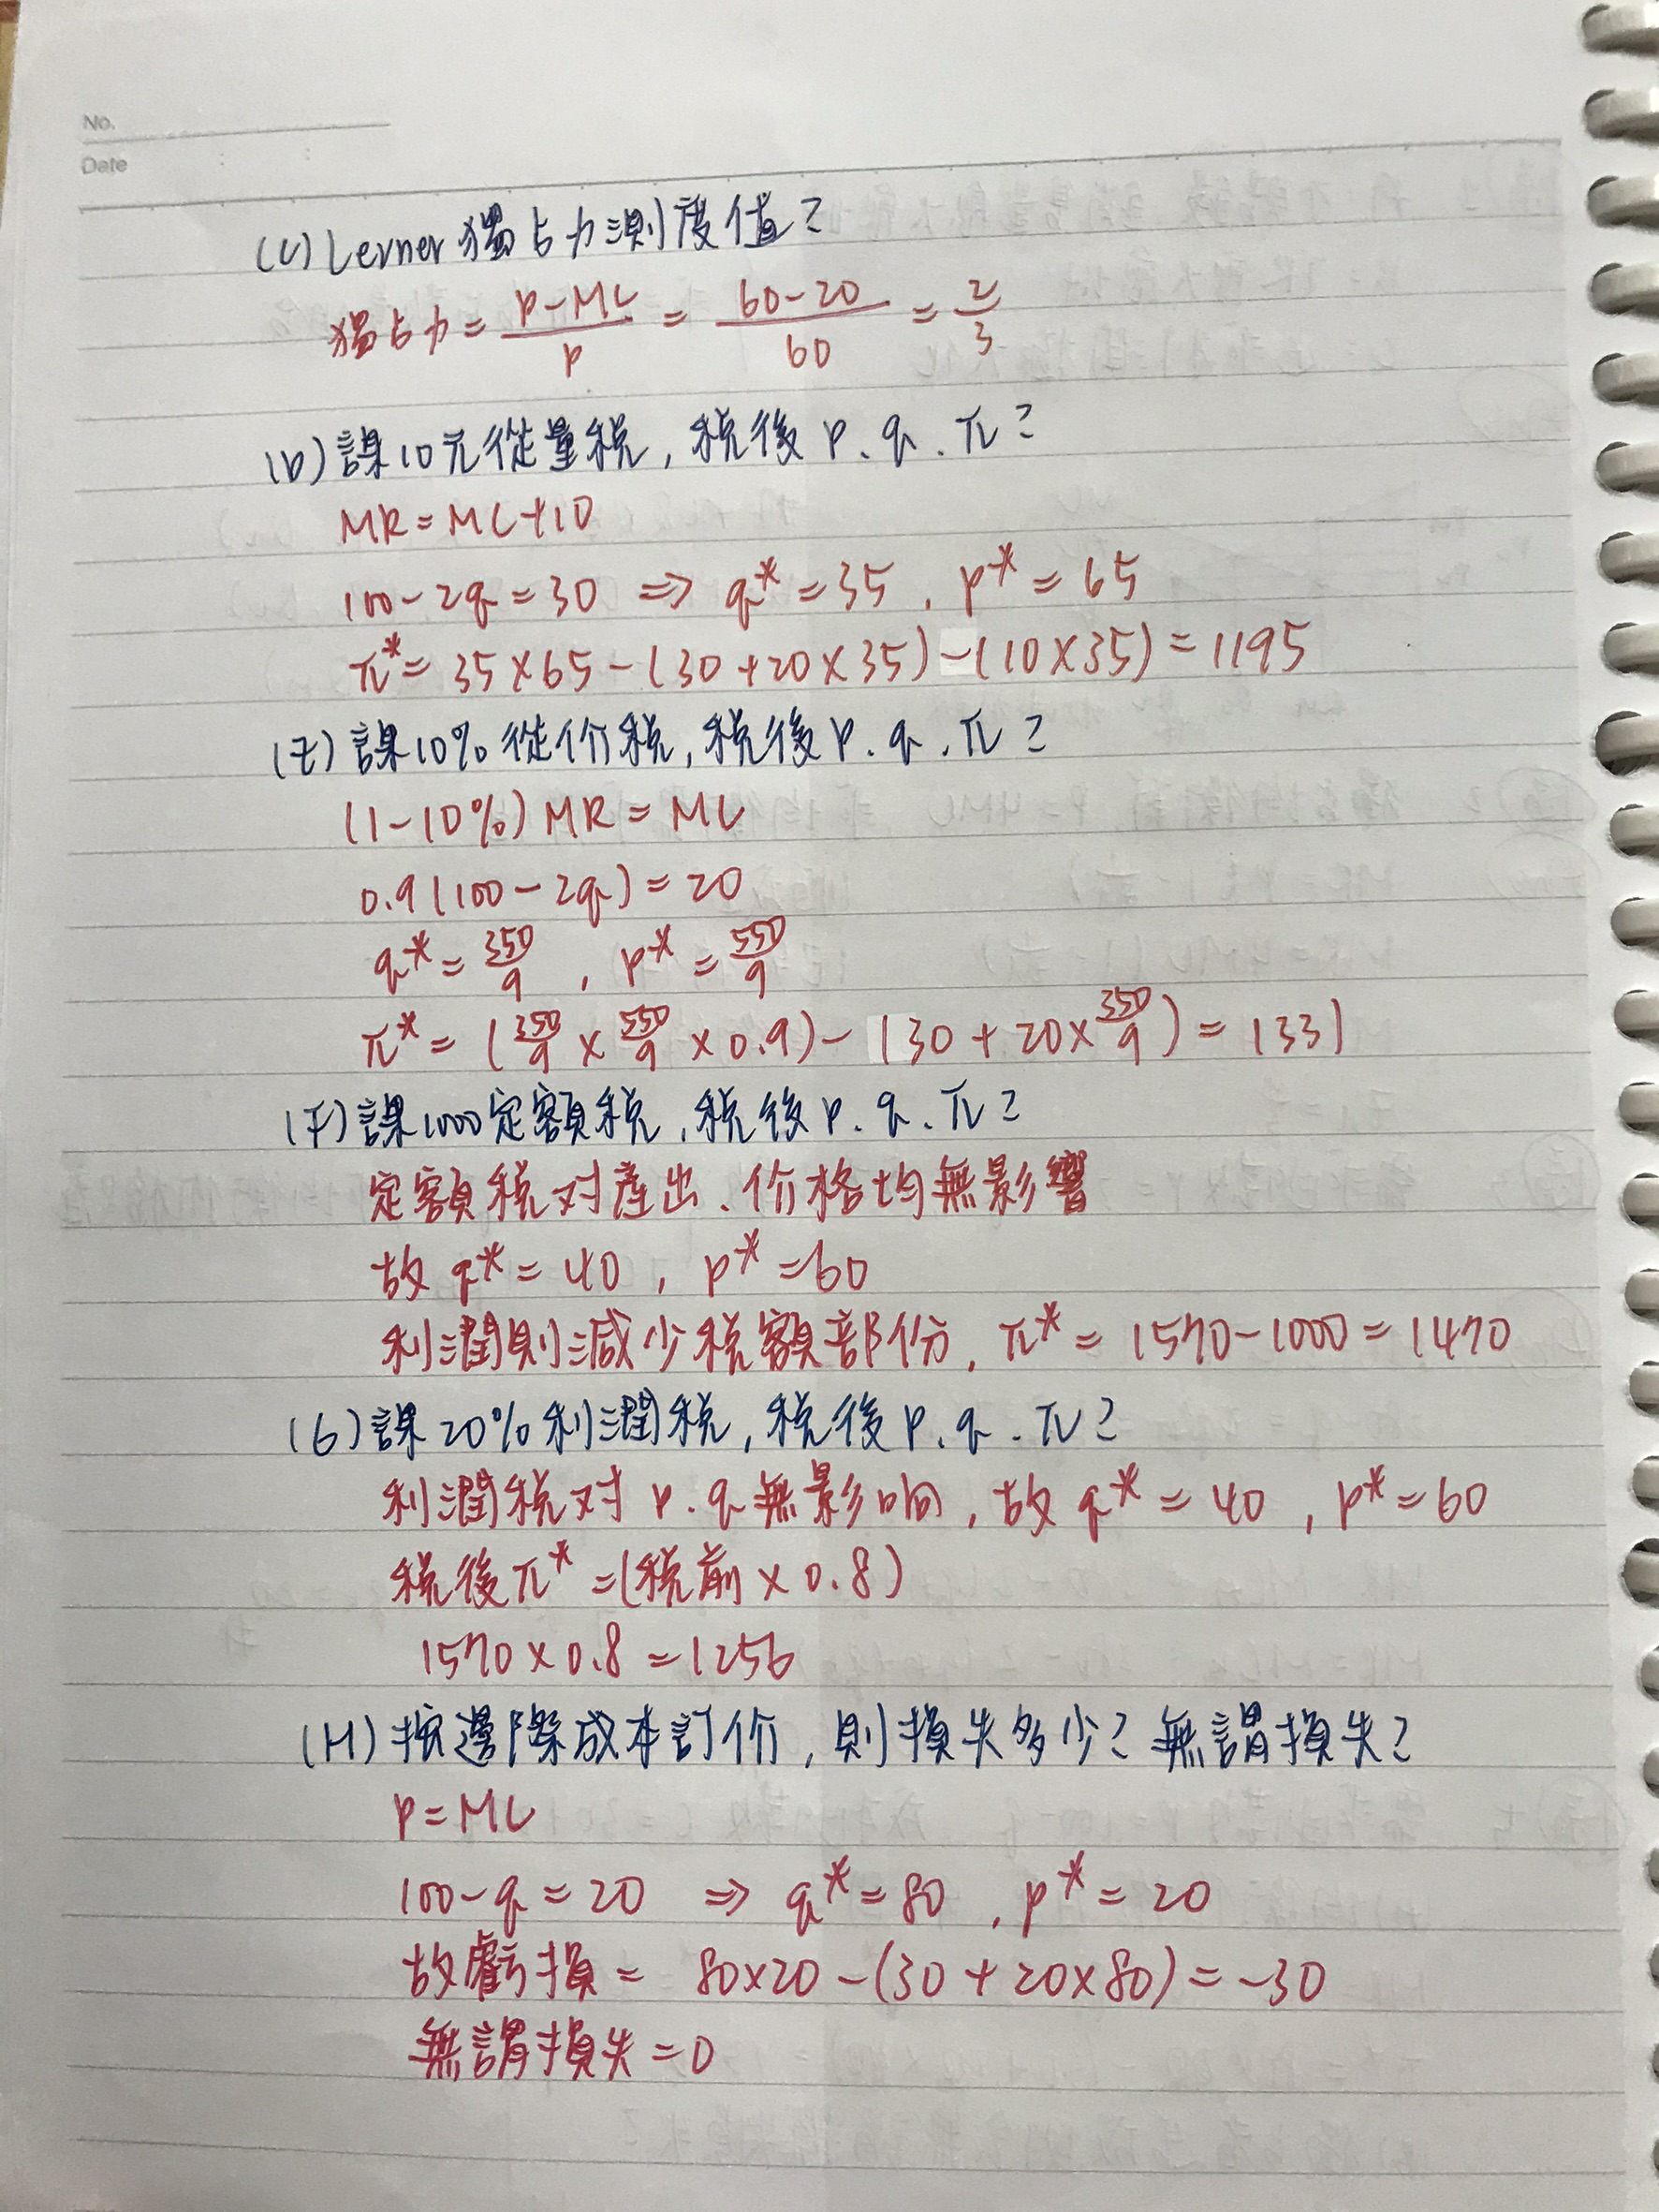 No.
Date
(C) Lerner獨占力測度值?
獨占力 = (P-MC)/P = (60-20)/60 = 2/3
(D) 課10元從量稅, 稅後P.q.π?
MR=MC+10
100-2q=30 ⇒ q*=35, p*=65
π*=35×65-(30+20×35)-(10×35)=1195
(E) 課10%從价稅, 稅後P.q.π?
(1-10%)MR=MC
0.9(100-2q)=20
q*=350/9, p*=550/9
π*=(350/9×550/9×0.9)-(30+20×350/9)=1331
(F) 課1000定額稅, 稅後P.q.π?
定額稅对產出、价格均無影響
故q*=40, p*=60
利潤則減少稅額部份, π*=1570-1000=1470
(G) 課20%利潤稅, 稅後P.q.π?
利潤稅对P.q無影响, 故q*=40, p*=60
稅後π*=(稅前×0.8)
1570×0.8=1256
(H) 按邊際成本訂价, 則損失多少? 無謂損失?
P=MC
100-q=20 ⇒ q*=80, p*=20
故虧損=80×20-(30+20×80)=-30
無謂損失=0